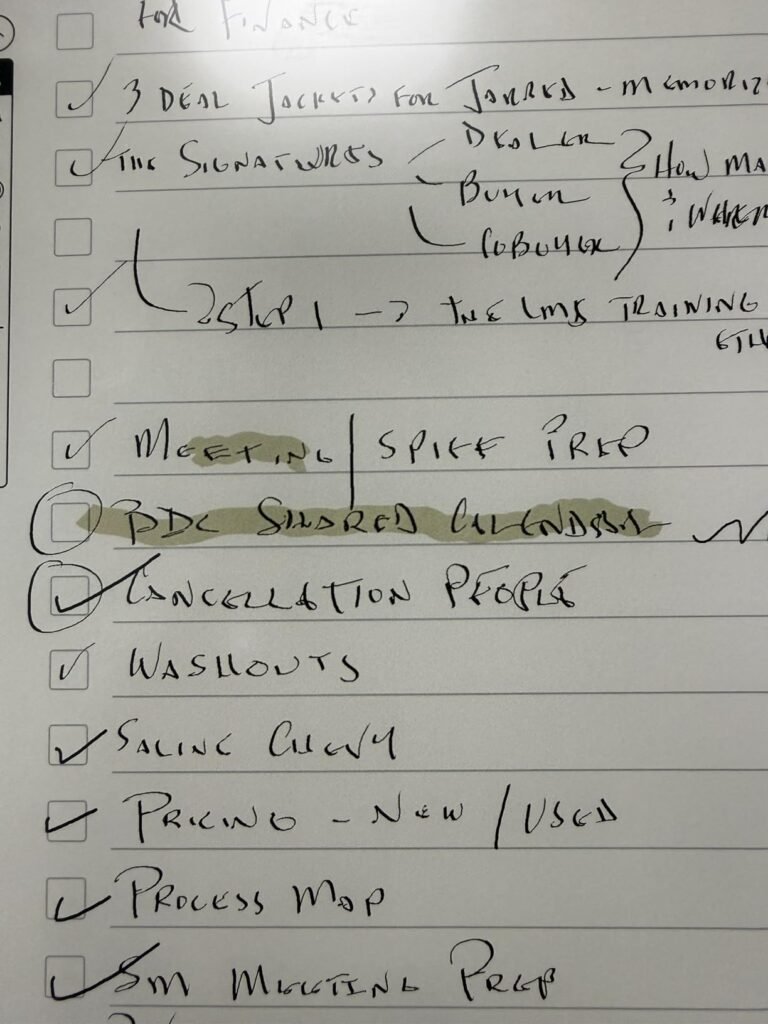 FOR FINANCE
3 DEAL JACKETS FOR JARRED - MEMORIZ
THE SIGNATURES
DEALER
BUYER
COBUYER
HOW MA
& WHER
STEP 1 → THE LMS TRAINING
MEETING | SPIFF PREP
BDC SHARED CALENDAR
CANCELLATION PEOPLE
WASHOUTS
SALINE CHEVY
PRICING - NEW / USED
PROCESS MAP
SM MEETING PREP